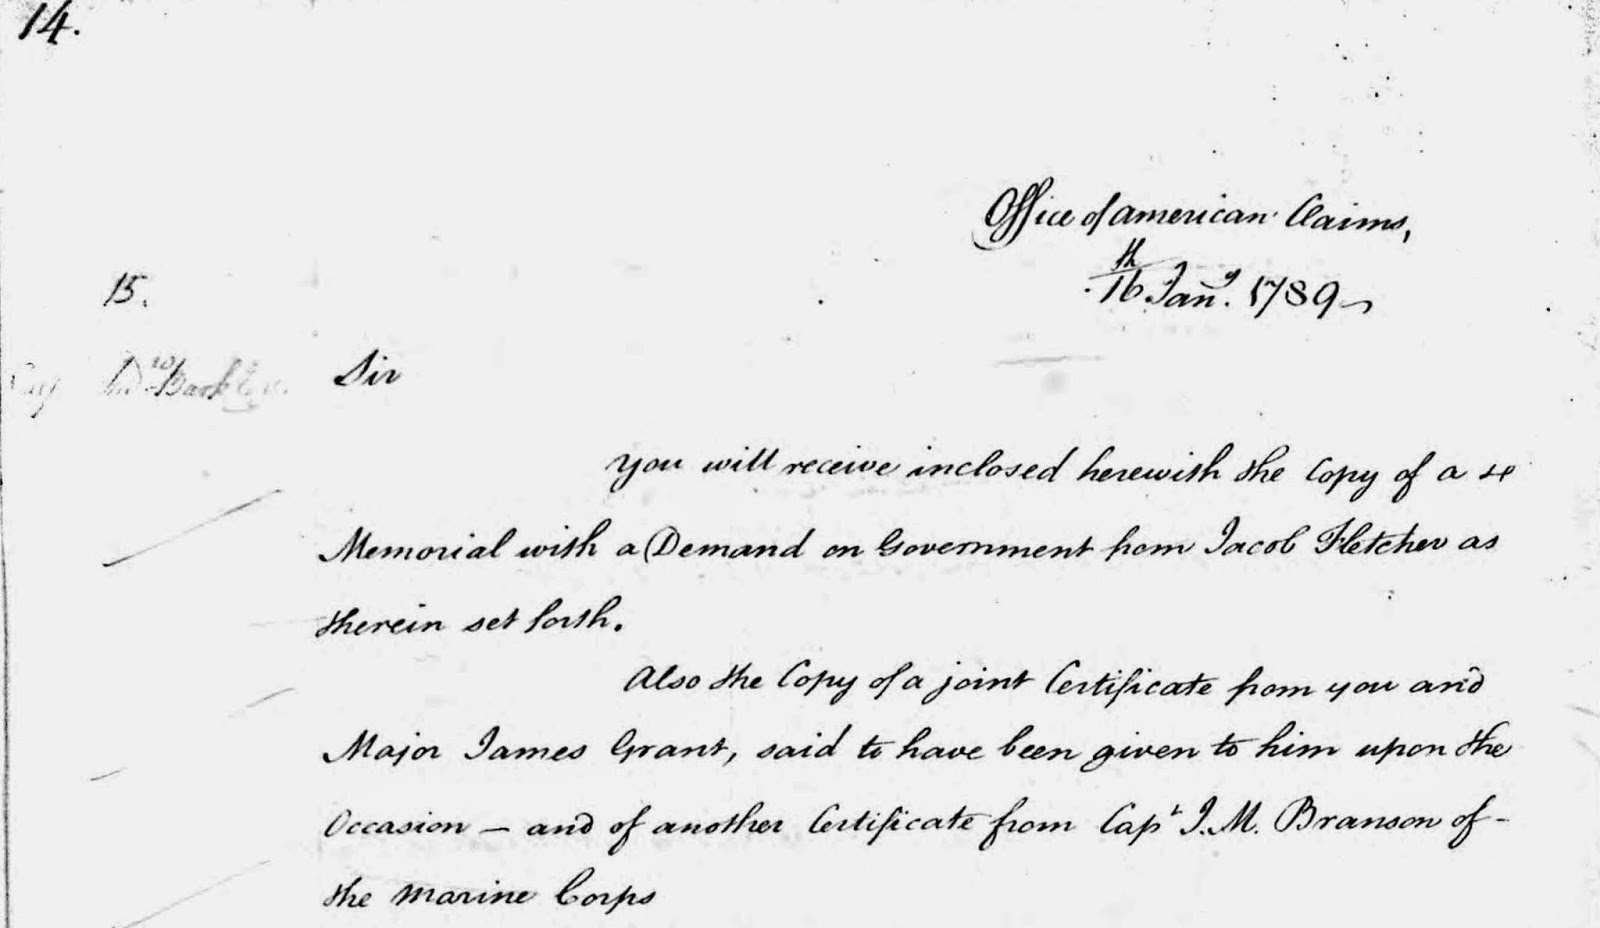 14.
Office of american Claims,
16th Jany. 1789
15.
Sir
you will receive inclosed herewith the Copy of a
Memorial with a Demand on Government from Jacob Fletcher as
therein set forth.
Also the Copy of a joint Certificate from you and
Major James Grant, said to have been given to him upon the
Occasion — and of another Certificate from Capt J. M. Branson of -
the Marine Corps